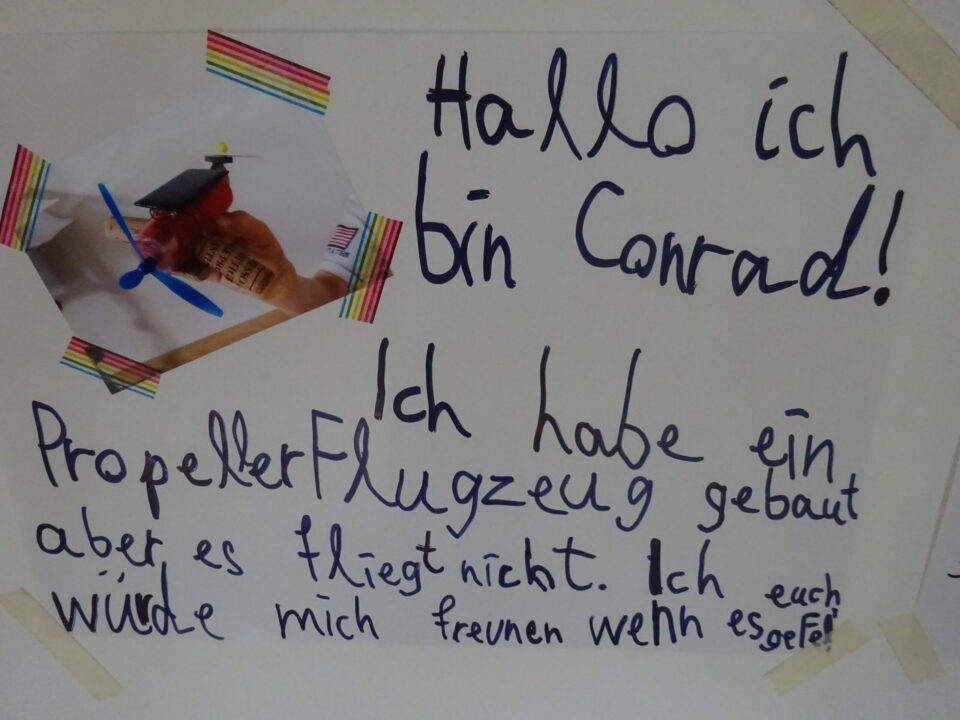 Hallo ich
bin Conrad!
Ich habe ein
PropellerFlugzeug gebaut
aber es fliegt nicht. Ich
würde mich freunen wenn es euch